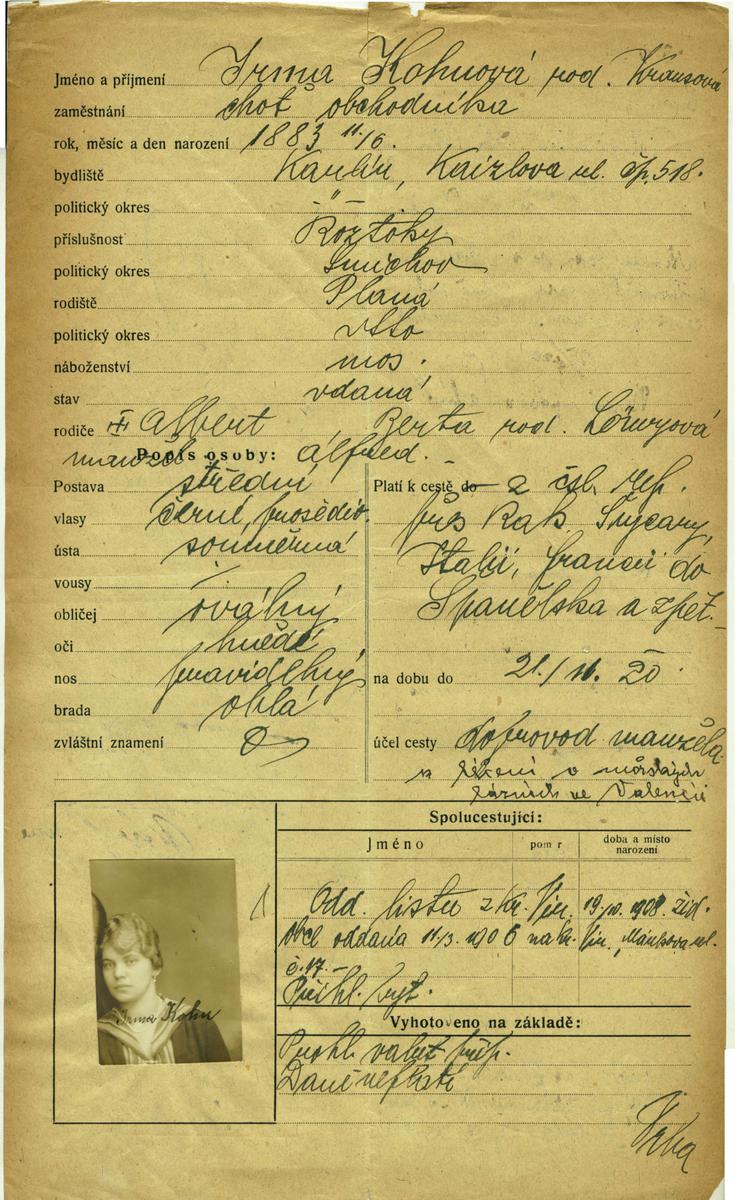 Jméno a příjmení Irma Kohnová rod. Krausová
zaměstnání choť obchodníka
rok, měsíc a den narození 1883 11/6.
bydliště Karlín, Kaizlova ul. čp. 518.
politický okres - " -
příslušnost Roztoky
politický okres Smíchov
rodiště Planá
politický okres dtto
náboženství mos.
stav vdaná
rodiče Albert, Berta rod. Löwyová
manžel Alfred. -
Popis osoby:
Postava střední
vlasy černí, prošediv.
ústa souměrná
vousy /
obličej oválný
oči hnědé
nos pravidelný
brada oblá
zvláštní znamení 0
Platí k cestě do z čsl. rep.
přes Rak. Švýcary,
Italii, Francii do
Španělska a zpět. -
na dobu do 21./11. 20.
účel cesty doprovod manžela
k léčení v mořských
lázních ve Valencii
Spolucestující:
Jméno pom r doba a místo narození
Odd. listu z Kr. Vin. 19/10. 1908. žid.
obcí oddaná 11/3. 1906 na Kr. Vin., Mánesova ul.
č. 17. -
Přihl. byt.
Irma Kohn
Vyhotoveno na základě:
Prohl. valut. přip.
Daně neplatí